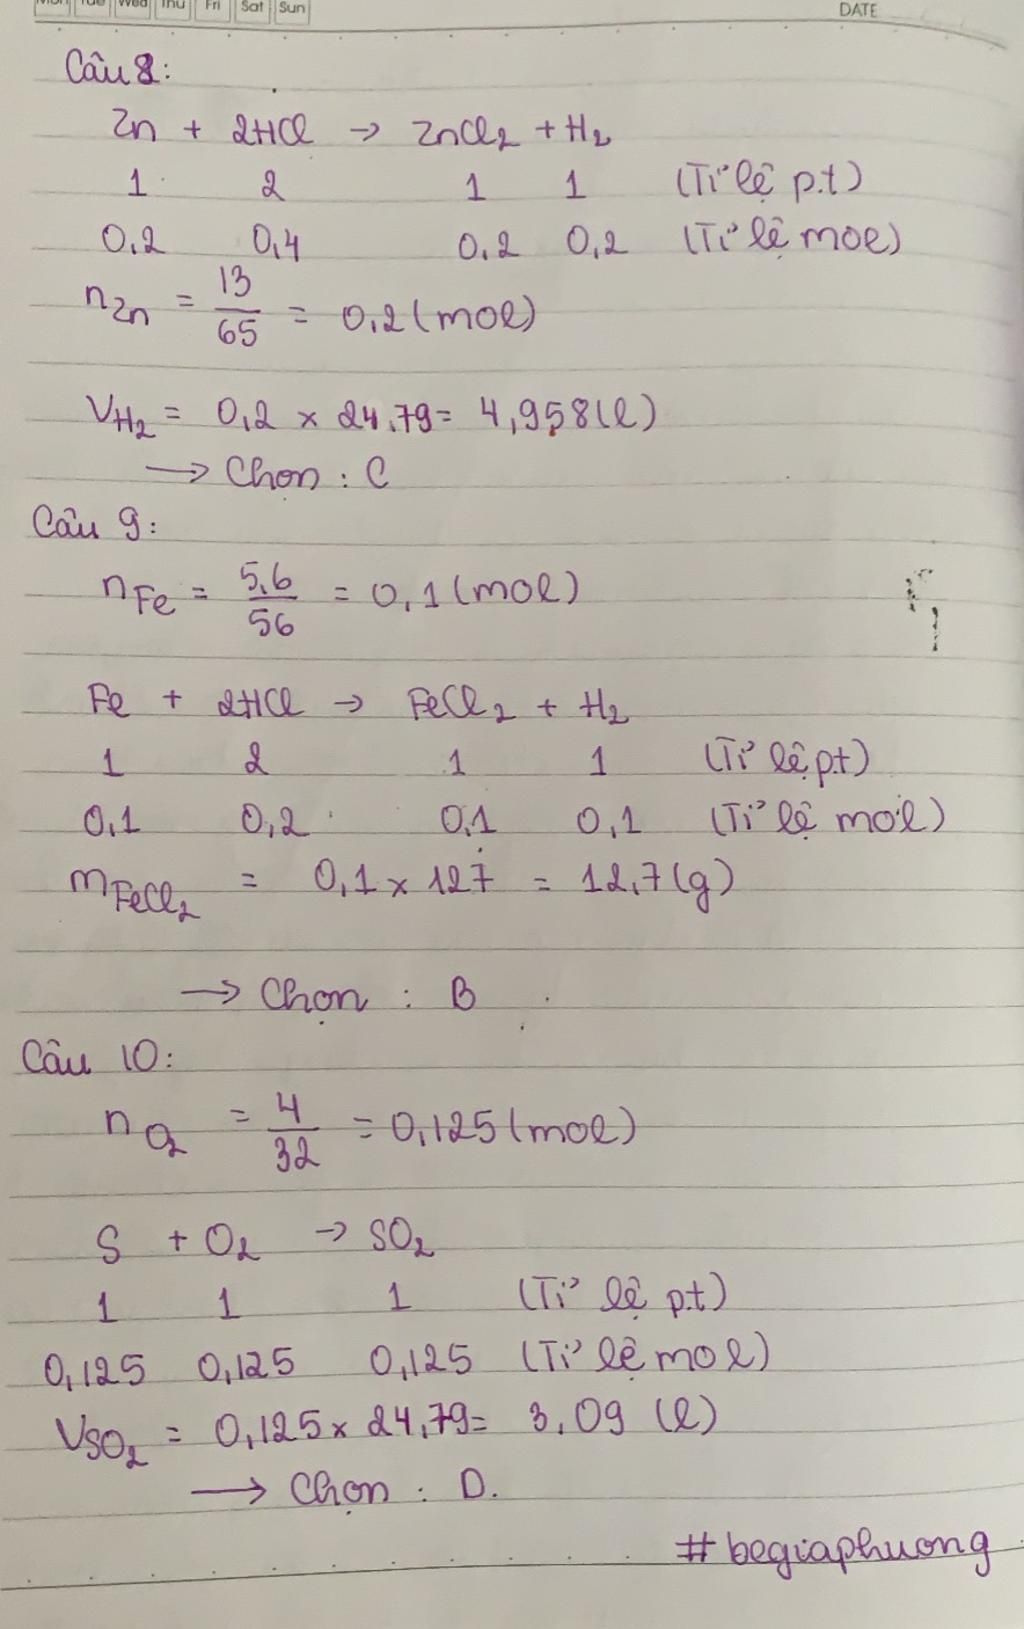 Mon Tue Wed Thu Fri Sat Sun DATE
Câu 8:
Zn + 2HCl → ZnCl₂ + H₂
1 2 1 1 (Tỉ lệ p.t)
0,2 0,4 0,2 0,2 (Tỉ lệ mol)
n_Zn = 13/65 = 0,2 (mol)
V_H₂ = 0,2 × 24,79 = 4,958 (l)
→ Chọn : C
Câu 9:
n_Fe = 5,6/56 = 0,1 (mol)
Fe + 2HCl → FeCl₂ + H₂
1 2 1 1 (Tỉ lệ p.t)
0,1 0,2 0,1 0,1 (Tỉ lệ mol)
m_FeCl₂ = 0,1 × 127 = 12,7 (g)
→ Chọn : B
Câu 10:
n_O₂ = 4/32 = 0,125 (mol)
S + O₂ → SO₂
1 1 1 (Tỉ lệ p.t)
0,125 0,125 0,125 (Tỉ lệ mol)
V_SO₂ = 0,125 × 24,79 = 3,09 (l)
→ Chọn : D.
#begiaphuong